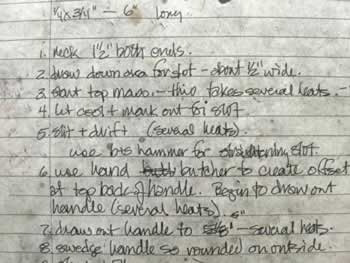 1/4 x 3/4" — 6" long.
1. neck 1 1/2" both ends.
2. draw down area for slot - about 1/2" wide.
3. start top mass. - this takes several heats. -
4. let cool + mark out for slot.
5. slit + drift (several heats).
use hts hammer for straightening slot.
6. use hand butcher to create offset
at top back of handle. Begin to draw out
handle (several heats).
7. draw out handle to 5" - several heats.
8. swedge handle so rounded on outside.